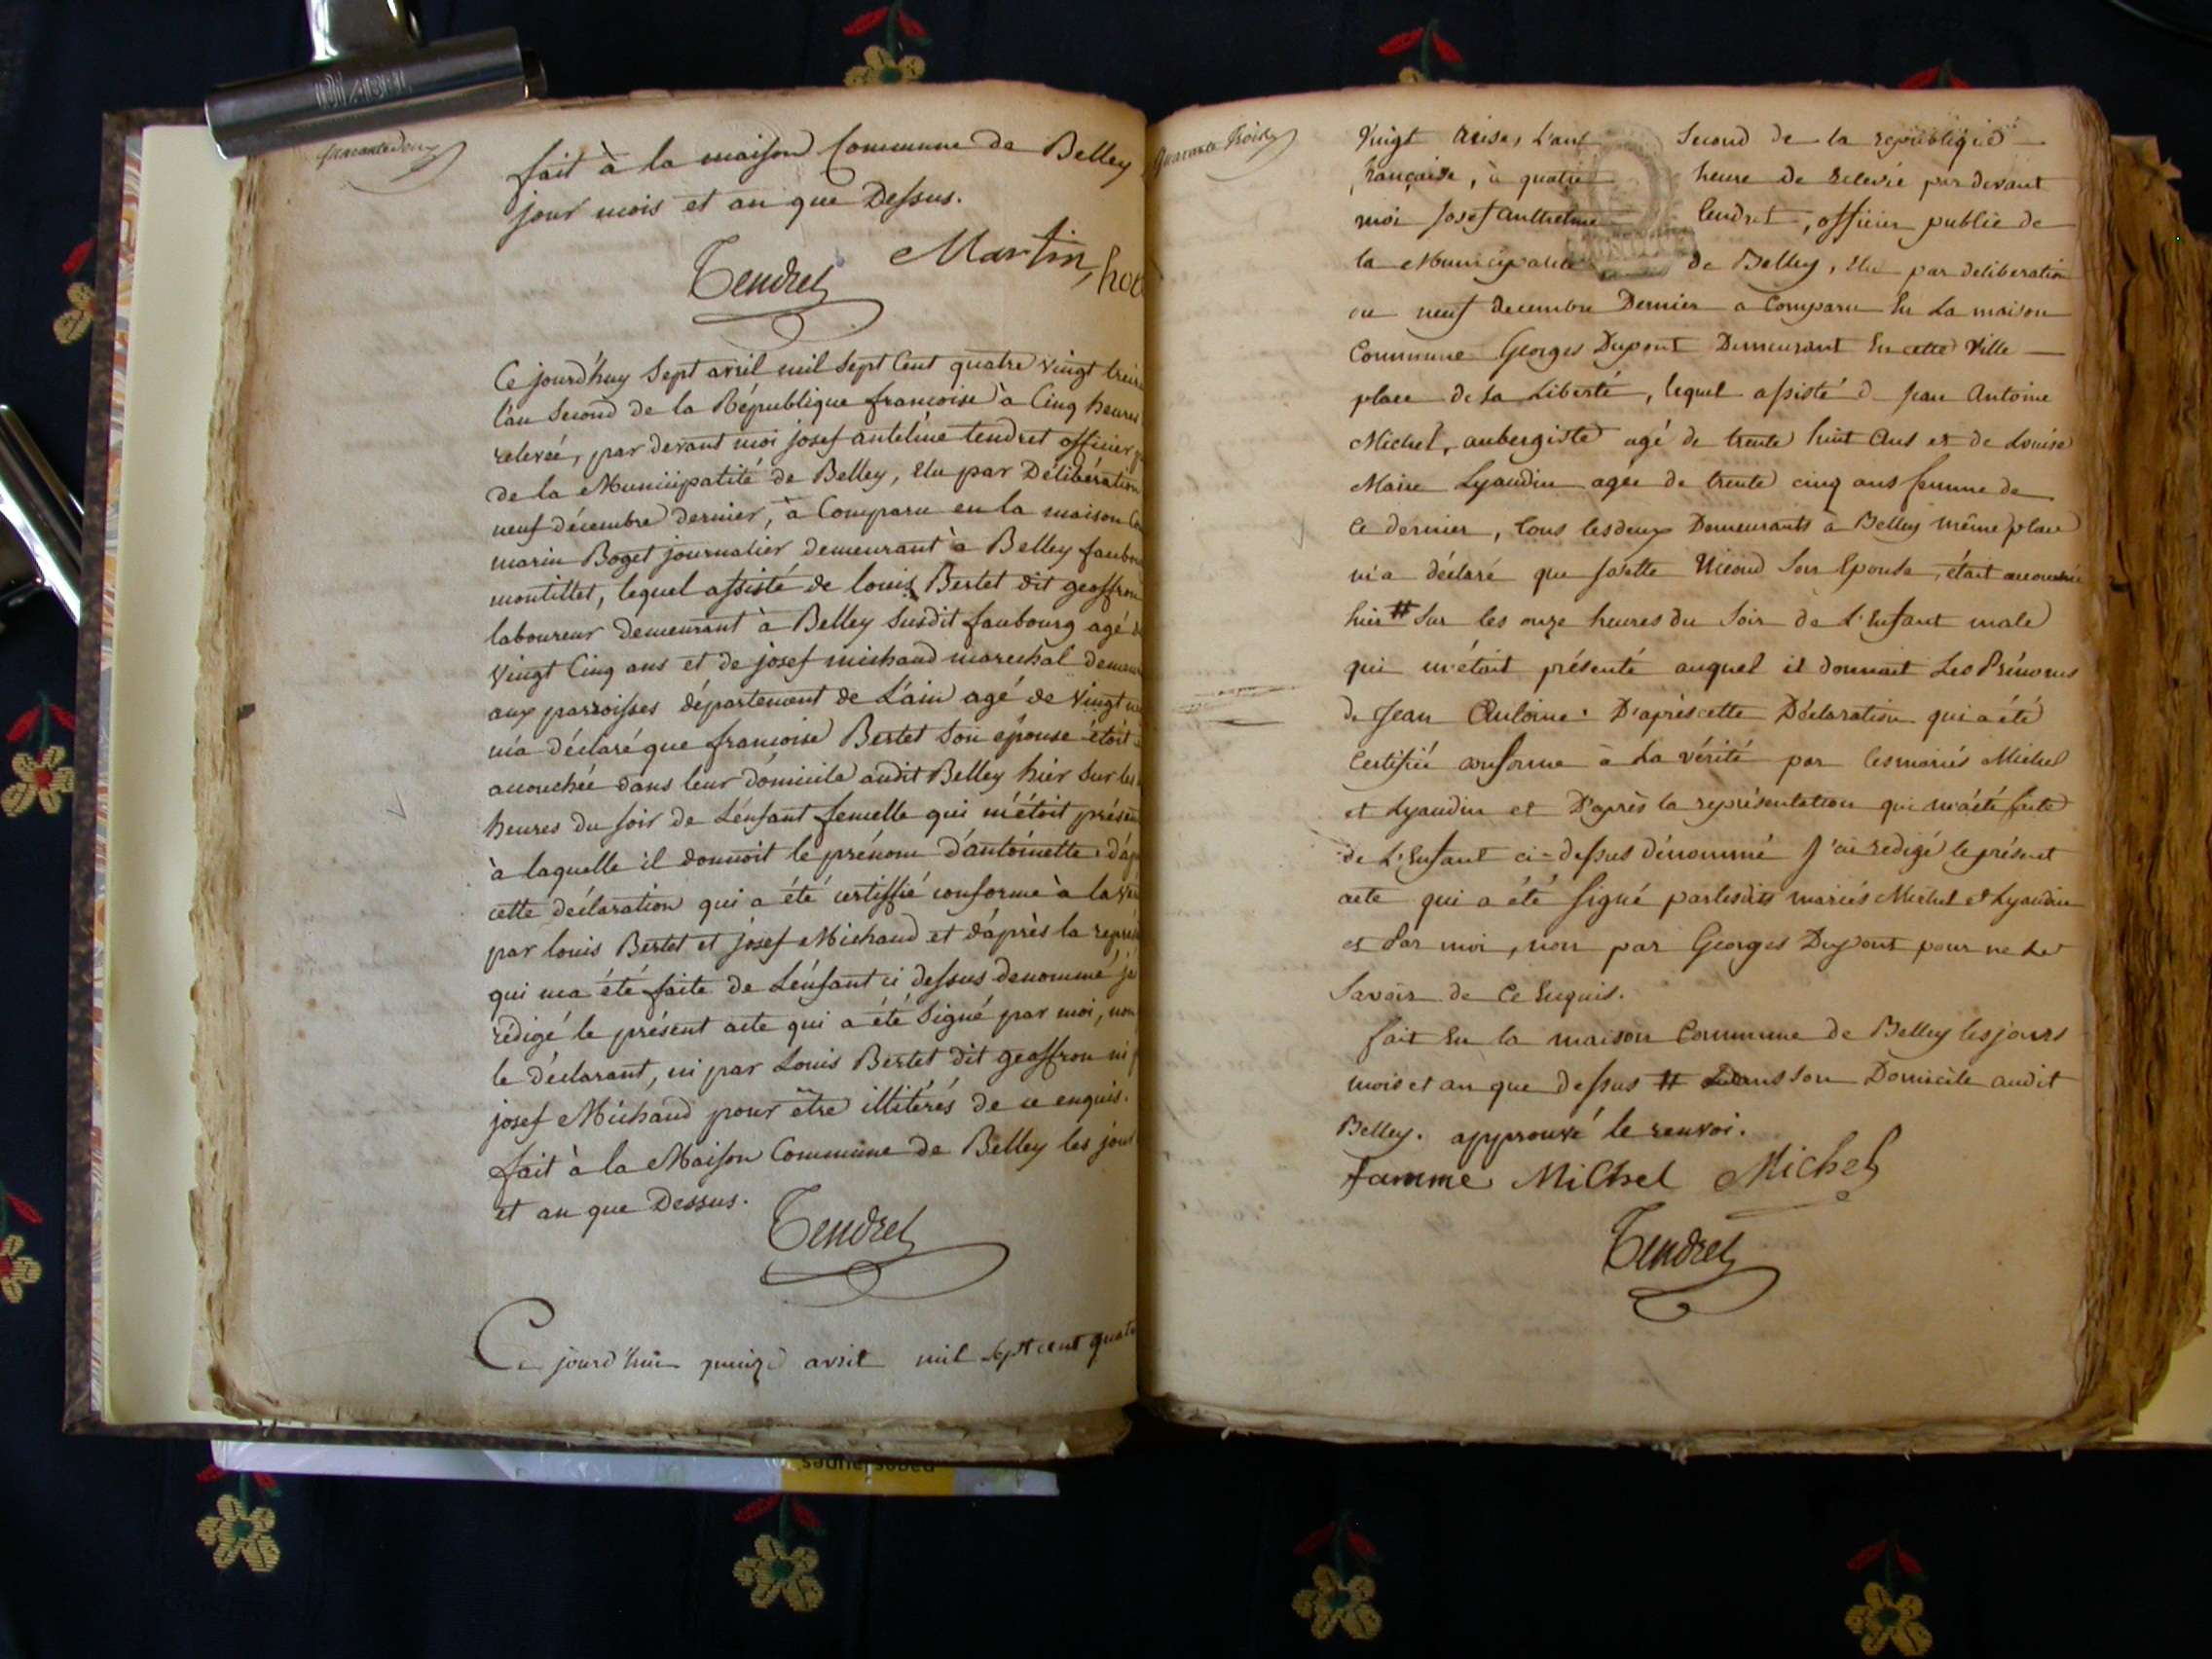 quarante deux
fait à la maison Commune de Belley
jour mois et an que Dessus.
Martin,
Tendret
Ce jourd'huy Sept avril mil Sept Cent quatre vingt treize
l'an Second de la République francoise à Cinq heures
relevée, par devant moi josef antelme tendret officier
de la Municipalité de Belley, Elu par Délibération
neuf décembre dernier, à Comparu en la maison
marin Boget journalier demeurant à Belley
montillet, lequel assisté de louis Bertet dit geoffron
laboureur demeurant à Belley Susdit faubourg agé
vingt Cinq ans et de josef michaud marechal
aux parroisses département de L'ain agé de vingt
m'a déclaré que francoise Bertet Son épouse étoit
accouchée dans leur domicile audit Belley hier sur les
heures du soir de L'énfant femelle qui m'étoit
à laquelle il donnoit le prénom d'antoinette.
cette déclaration qui a été certiffié conforme à la
par louis Bertet et josef Michaud et d'après la
qui m'a été faite de L'énfant ci dessus denommé, j'ai
rédigé le présent acte qui a été Signé par moi, non
le déclarant, ni par Louis Bertet dit geoffron ni
josef Michaud pour être illitérés de ce enquis.
fait à la Maison Commune de Belley les jour
et an que Dessus.
Tendret
Ce jourd'hui quinze avril mil sept cent
quarante trois
vingt treise, L'an Second de la republique
française, à quatre heure de relevée par devant
moi Josef Anthelme Tendret, officier public de
la Municipalité de Belley, Elu par deliberation
du neuf decembre Dernier a Comparu En La maison
Commune Georges Dupont Demeurant En cette Ville
place de la Liberté, lequel assisté de Jean Antoine
Michel, aubergiste agé de trente huit Ans et de Louise
Marie Lyaudin agée de trente cinq ans femme de
Ce dernier, tous les deux Demeurants à Belley même place
m'a déclaré que Josette Nicoud Son Epouse était accouchée
hier # Sur les onze heures du Soir de L'Enfant male
qui m'était présenté auquel il donnait Les Prénoms
de Jean Antoine. D'après cette Déclaration qui a été
Certifiée conforme à La vérité par les mariés Michel
et Lyaudin et D'après la représentation qui m'a été faite
de L'Enfant ci-dessus dénommé J'ai redigé le présent
acte qui a été Signé par lesdits mariés Michel et Lyaudin
et Par moi, non par Georges Dupont pour ne Le
Savoir de Ce Enquis.
fait En la maison Commune de Belley les jours
mois et an que dessus # Dans son Domicile audit
Belley. approuvé le renvoi.
famme Michel Michel
Tendret